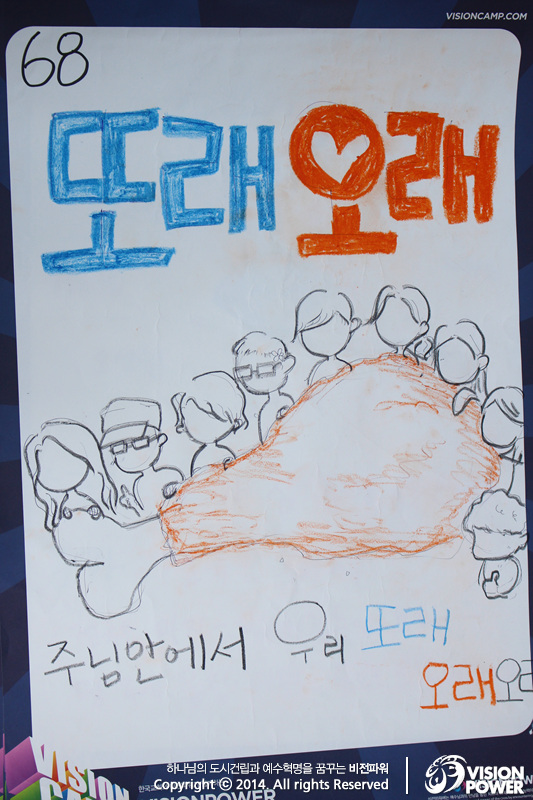 VISIONCAMP.COM
68
또래오래
주님안에서 우리 또래
오래오래
VISION
하나님의 도시건립과 예수혁명을 꿈꾸는 비전파워
Copyright ⓒ 2014. All rights Reserved
VISION POWER
VISIONPOWER